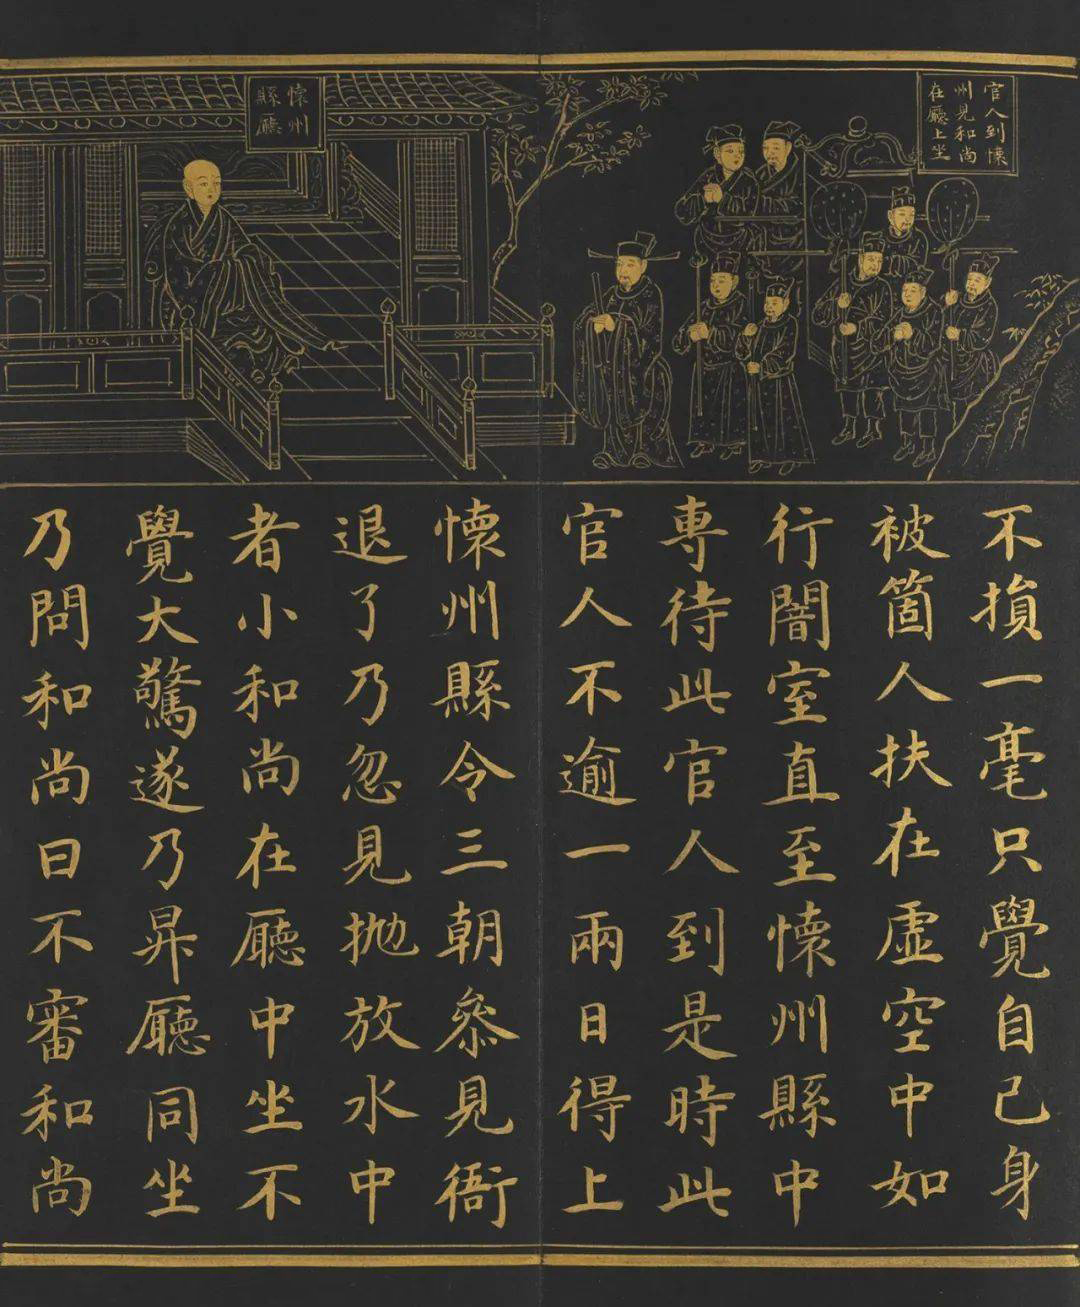 官人到懷
州見和尚
在廳上坐
懷州
縣廳
不損一毫只覺自己身
被箇人扶在虛空中如
行闇室直至懷州縣中
專待此官人到是時此
官人不逾一兩日得上
懷州縣令三朝叅見衙
退了乃忽見拋放水中
者小和尚在廳中坐不
覺大驚遂乃昇廳同坐
乃問和尚曰不審和尚